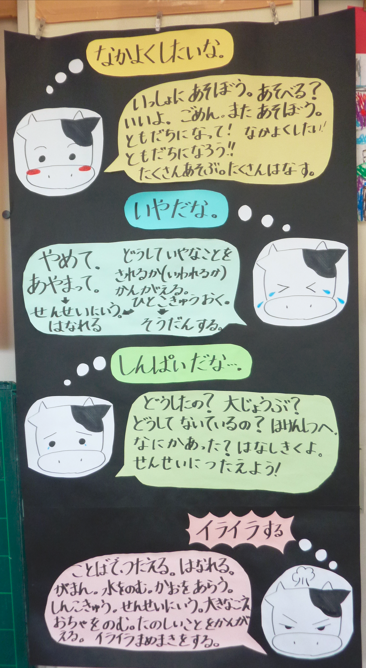 なかよくしたいな。
いっしょに あそぼう。あそべる？
いいよ。ごめん。また あそぼう。
ともだちになって！ なかよくしたい！
ともだちになろう!!
たくさんあそぶ。たくさんはなす。
いやだな。
やめて、
あやまって。
↓
せんせいにいう。
はなれる
どうしていやなことを
されるか(いわれるか)
かんがえる。
ひとこきゅうおく。
↓
そうだんする。
しんぱいだな…。
どうしたの？ 大じょうぶ？
どうして ないているの？ ほけんしつへ。
なにかあった？ はなしきくよ。
せんせいにつたえよう！
イライラする
ことばでつたえる。はなれる。
がまん。水をのむ。かおをあらう。
しんこきゅう。せんせいにいう。大きなこえ
おちゃをのむ。たのしいことをかんが
える。イライラまめまきをする。